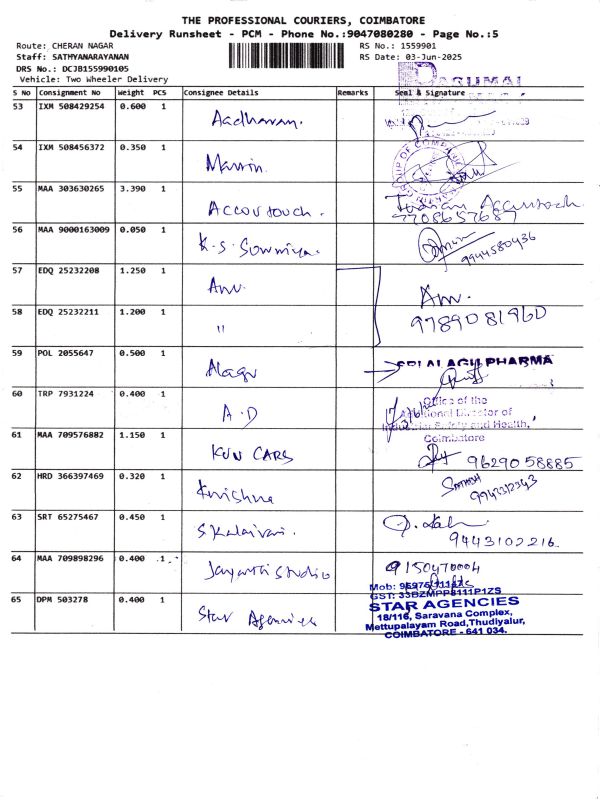 THE PROFESSIONAL COURIERS, COIMBATORE
Delivery Runsheet - PCM - Phone No.:9047080280 - Page No.:5
Route: CHERAN NAGAR RS No.: 1559901
Staff: SATHYANARAYANAN RS Date: 03-Jun-2025
DRS No.: DCJB155990105
Vehicle: Two Wheeler Delivery
S No Consignment No Weight PCS Consignee Details Remarks Seal & Signature
53 IXM 508429254 0.600 1 Aadhavan.
54 IXM 508456372 0.350 1
55 MAA 303630265 3.390 1 Accoutouch. 7708657687
56 MAA 9000163009 0.050 1 K.S. Sowmiya. 9944580436
57 EDQ 25232208 1.250 1 Anv Anv.
58 EDQ 25232211 1.200 1 " 9789081960
59 POL 2055647 0.500 1 Alagu SRI ALAGU PHARMA
60 TRP 7931224 0.400 1 A.D Office of the
Additional Director of
Industrial Safety and Health,
Coimbatore
61 MAA 709576882 1.150 1 KUN CARS 9629058885
62 HRD 366397469 0.320 1 Krishna SATHISH
63 SRT 65275467 0.450 1 S Kalaivani. 9443102216
64 MAA 709898296 0.400 1 Jayanthi Studio 9150470004
65 DPM 503278 0.400 1 Star Agencies
GST: 33BZMPP8111P1ZS
STAR AGENCIES
18/116, Saravana Complex,
Mettupalayam Road, Thudiyalur,
COIMBATORE - 641 034.